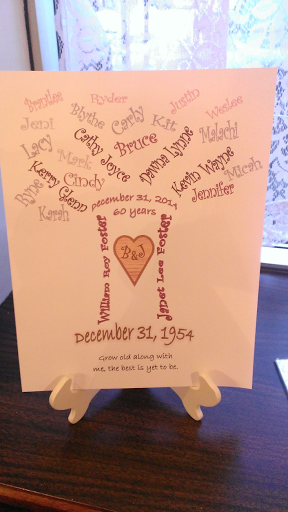 Brantlee
Ryder
Justin
Weslee
Jeni
Blythe
Carly
Kit
Malachi
Lacy
Mark
Cathy Joyce
Bruce
Dawna Lynne
Kevin Wayne
Micah
Rylie
Kerry Glenn
Cindy
Jennifer
Karah
December 31, 2014
60 years
William Roy Foster
B&J
Janet Lee Foster
December 31, 1954
Grow old along with
me, the best is yet to be.